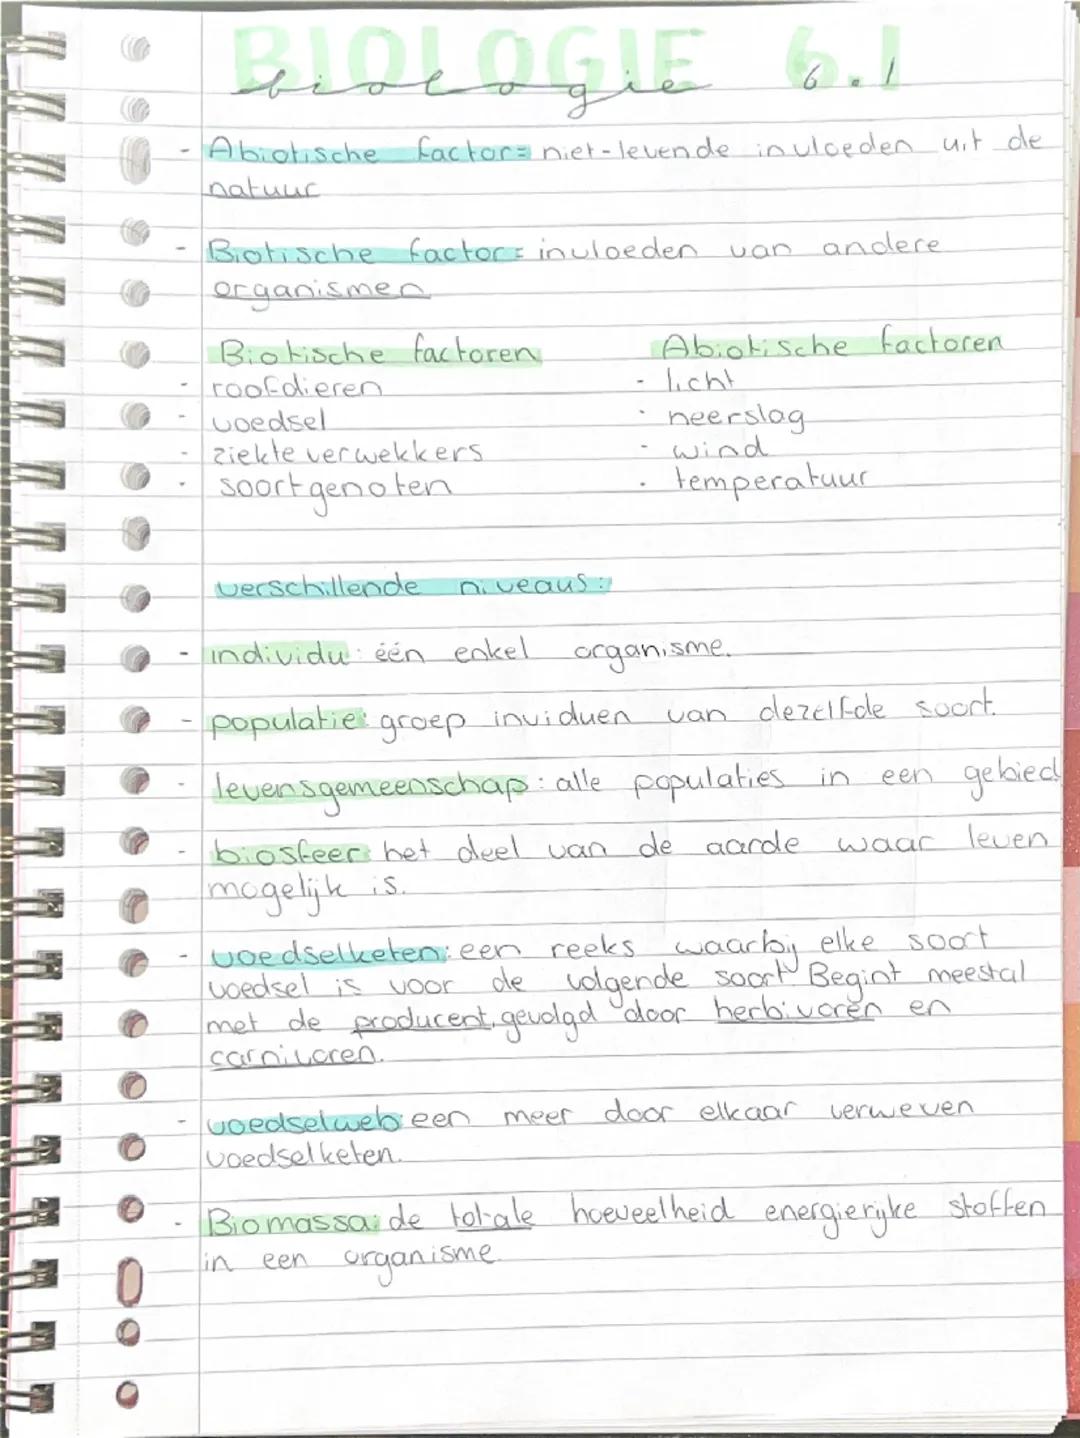 BIOLOGIE 6.1
biologie 6.1
- Abiotische factor= niet-levende invloeden uit de
natuur
- Biotische factor= invloeden van andere
organismen
Biotische factoren
- roofdieren
- voedsel
- ziekteverwekkers
- soortgenoten
Abiotische factoren
- licht
- neerslag
- wind
- temperatuur
verschillende niveaus:
- individu: één enkel organisme.
- populatie: groep inviduen van dezelfde soort.
- levensgemeenschap: alle populaties in een gebied
- biosfeer: het deel van de aarde waar leven
mogelijk is.
- voedselketen: een reeks waarbij elke soort
voedsel is voor de volgende soort. Begint meestal
met de producent, gevolgd door herbivoren en
carnivoren.
- voedselweb: een meer door elkaar verweven
voedselketen.
- Biomassa: de totale hoeveelheid energierijke stoffen
in een organisme.